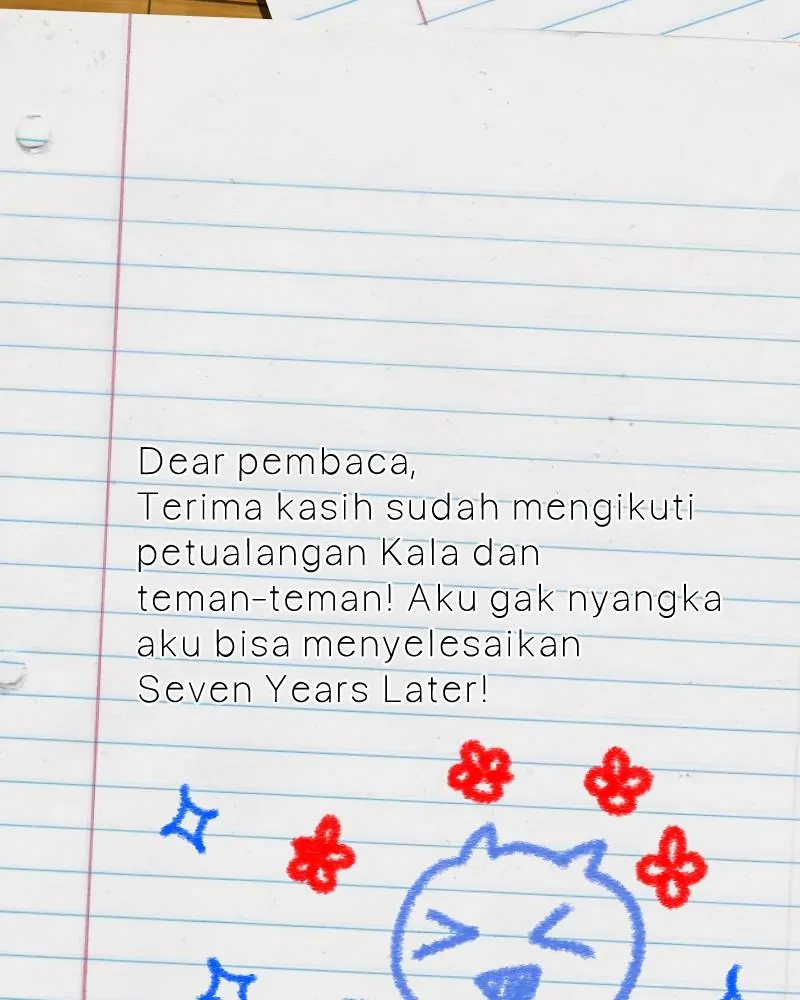 Dear pembaca,
Terima kasih sudah mengikuti
petualangan Kala dan
teman-teman! Aku gak nyangka
aku bisa menyelesaikan
Seven Years Later!